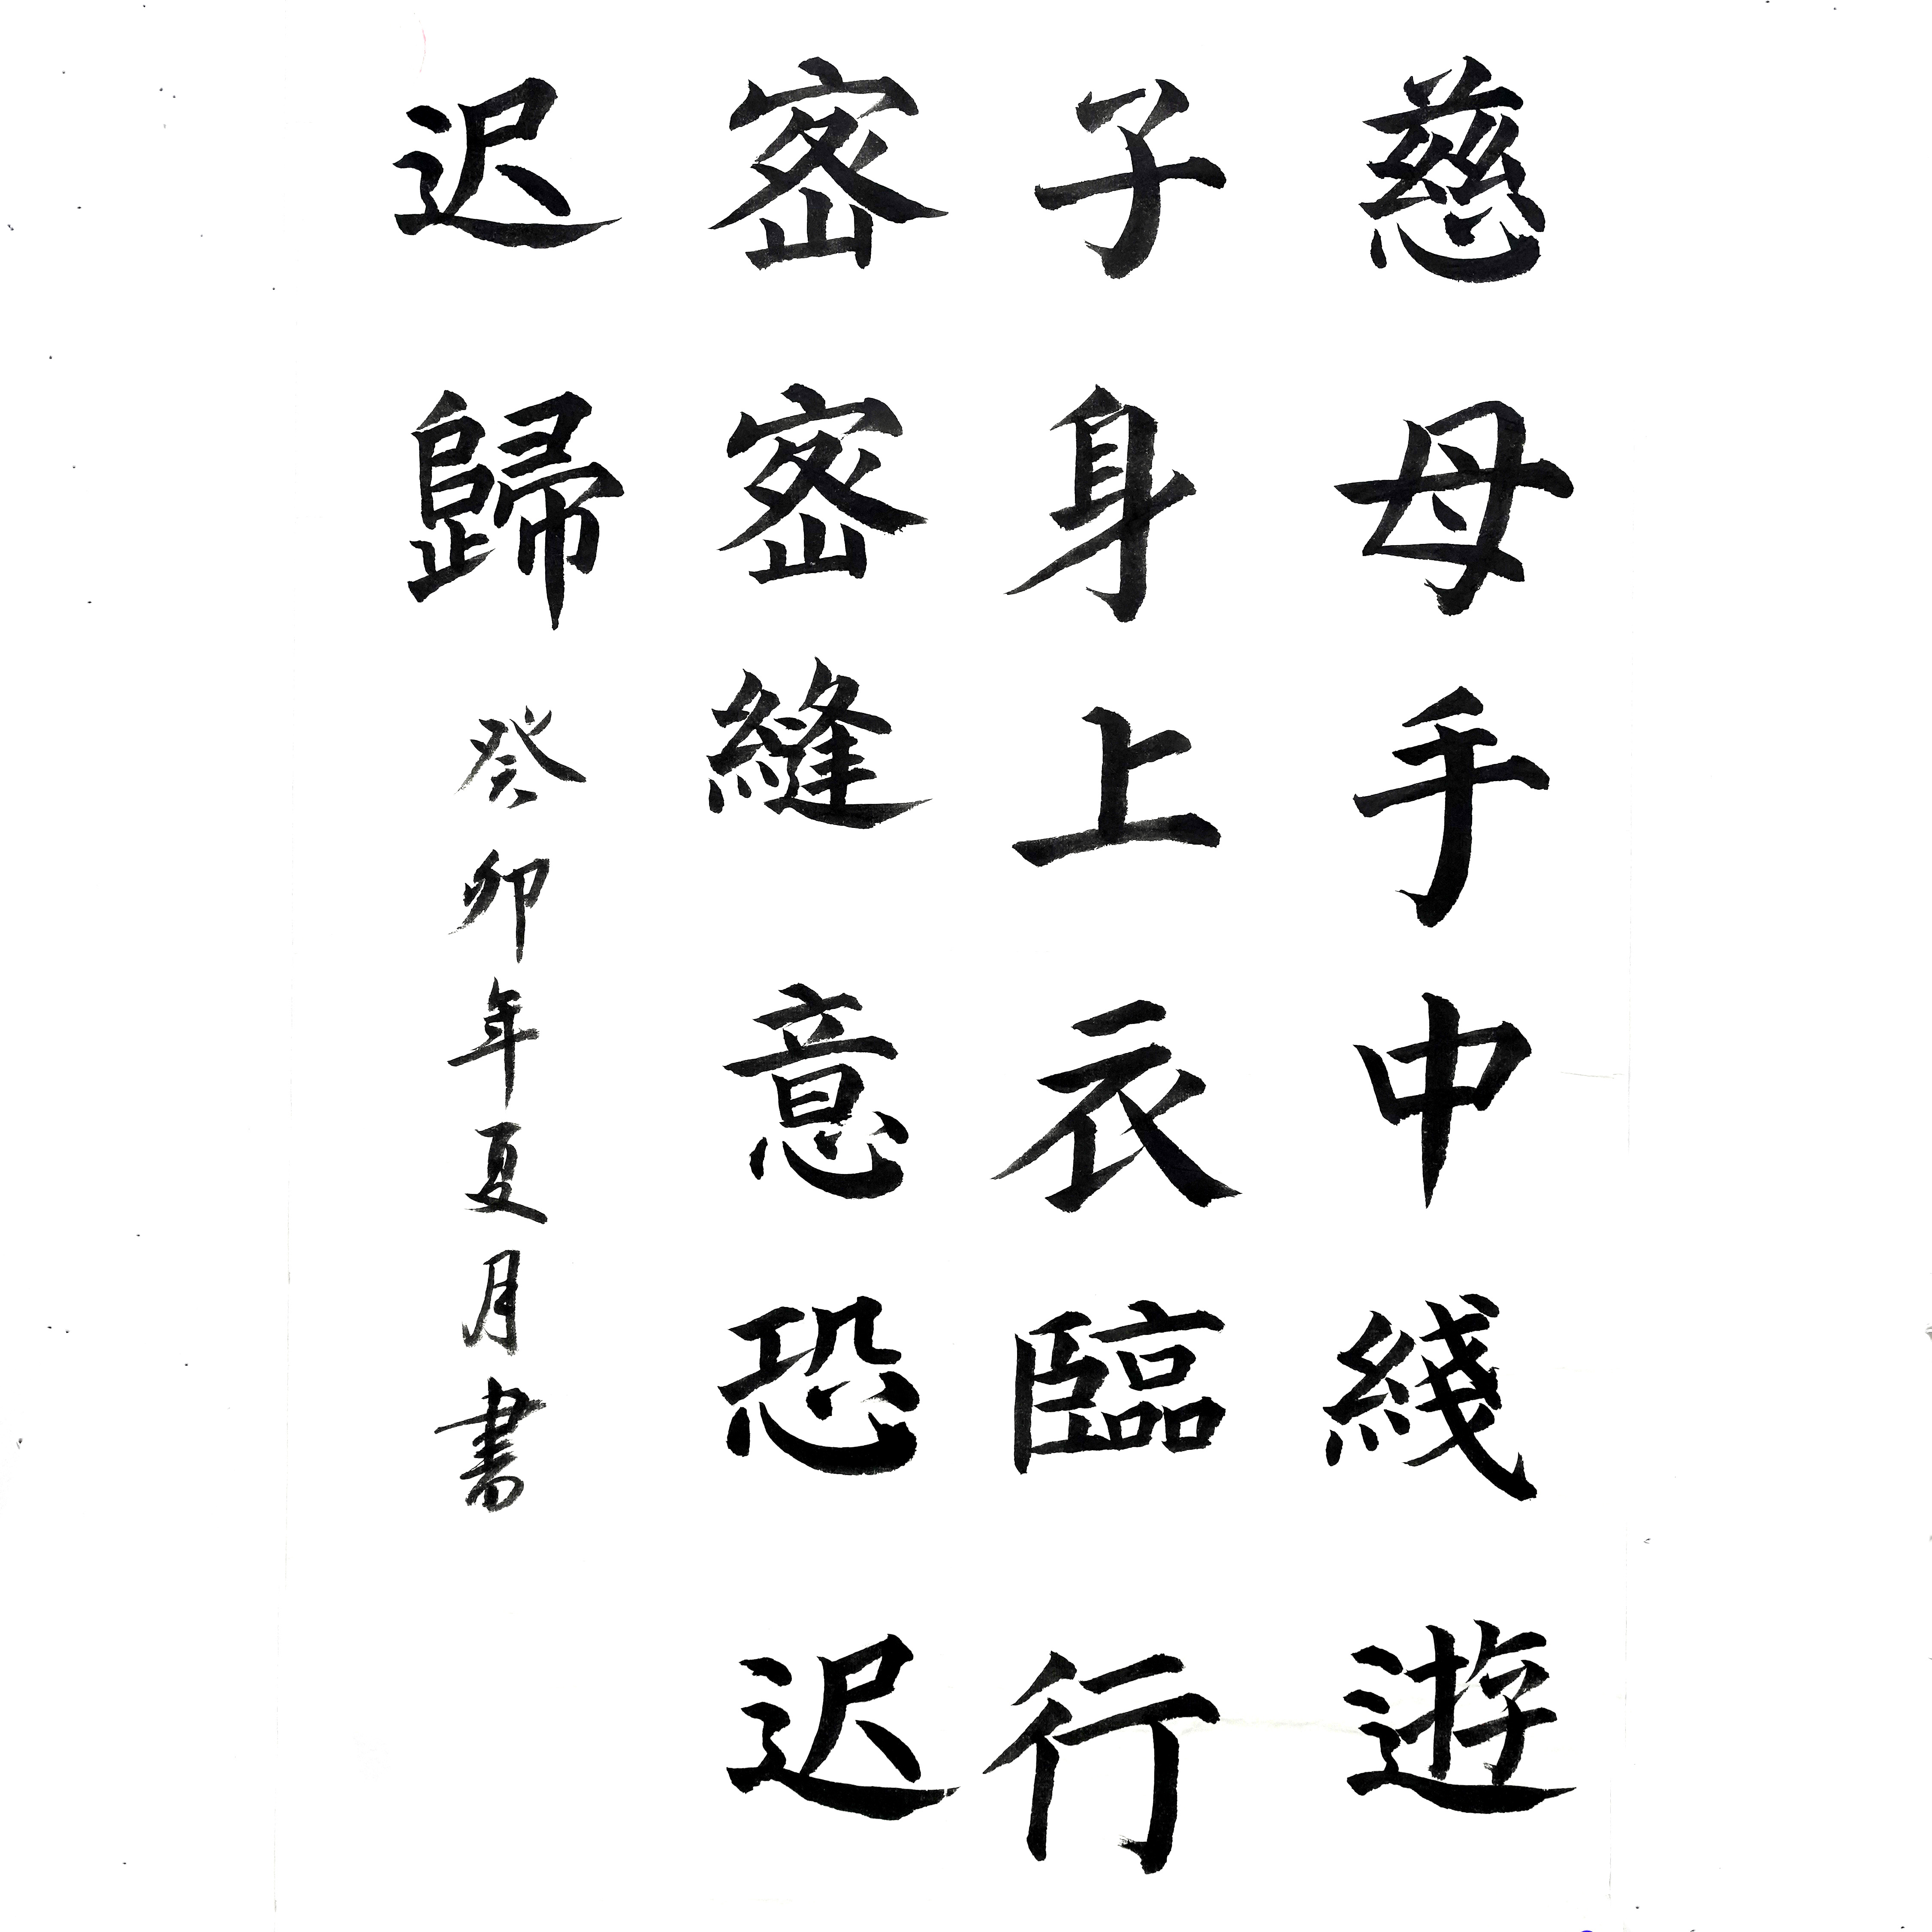 慈母手中綫遊
子身上衣臨行
密密縫意恐迟
迟歸
癸卯年夏月書